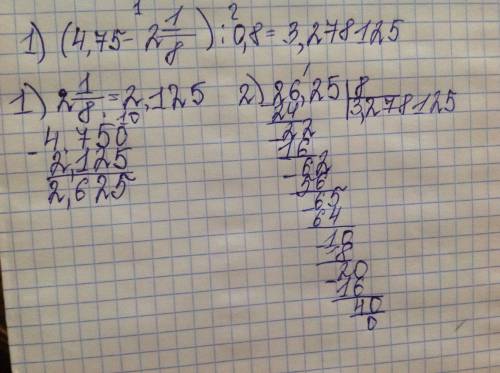 1) (4,75 - 2 1/8) : 0,8 = 3,278125
1) 2 1/8 = 2,125
- 4,750
2,125
2,625
2) 26,25 | 8
3,278125
24
- 22
16
- 62
56
- 65
64
- 10
8
- 20
16
40
0